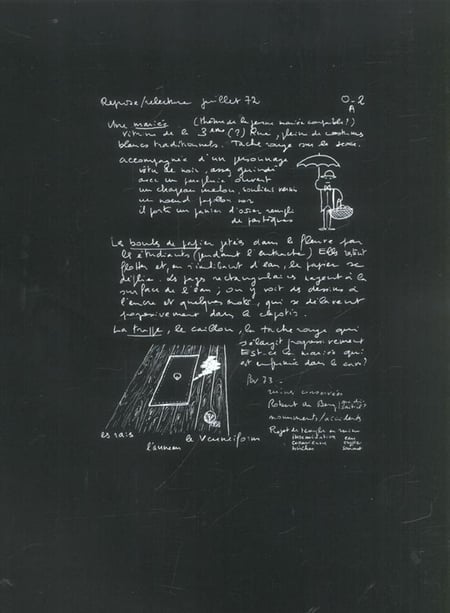 Reprise/relecture juillet 72
0-2
A
Une mariée (thème de la jeune mariée coupable?)
vitrine de la 3ème (?) Rue, pleine de costumes
blancs traditionnels. Tache rouge sur le sexe.
accompagnée d'un personnage
vêtu de noir, assez guindé
avec un parapluie ouvert
un chapeau melon, souliers vernis
un noeud papillon noir
il porte un panier d'osier rempli
de pastèques
Les boules de papier jetées dans le fleuve par
les étudiants (pendant l'entracte) Elles
flottent et, en s'imbibant d'eau, le papier se
déplie. Les pages rectangulaires nagent à la
surface de l'eau; on y voit des dessins à
l'encre et quelques mots, qui se délavent
progressivement dans le clapotis.
La truffe, le caillou, la tache rouge qui
s'élargit progressivement
Est-ce la mariée qui
est enfermée dans la cave?
les rais
l'anneau
le Vermiform
Robert de Berg
monuments/accidents
Projet de temple en ruine